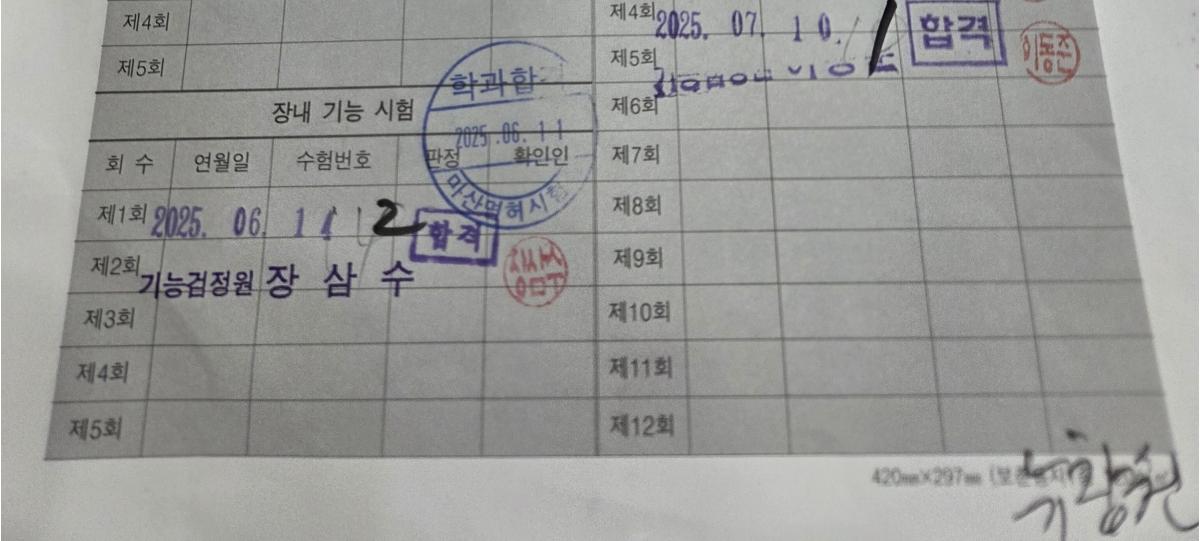 제4회
제5회
장내 기능 시험
학과합
2025.06.11
마산면허시험
회 수 연월일 수험번호 판정 확인인
제1회 2025. 06. 11 2 합격
제2회 기능검정원 장 삼 수
제3회
제4회
제5회
제4회 2025. 07. 10. 1 합격 이동준
제5회
제6회
제7회
제8회
제9회
제10회
제11회
제12회
420㎜×297㎜